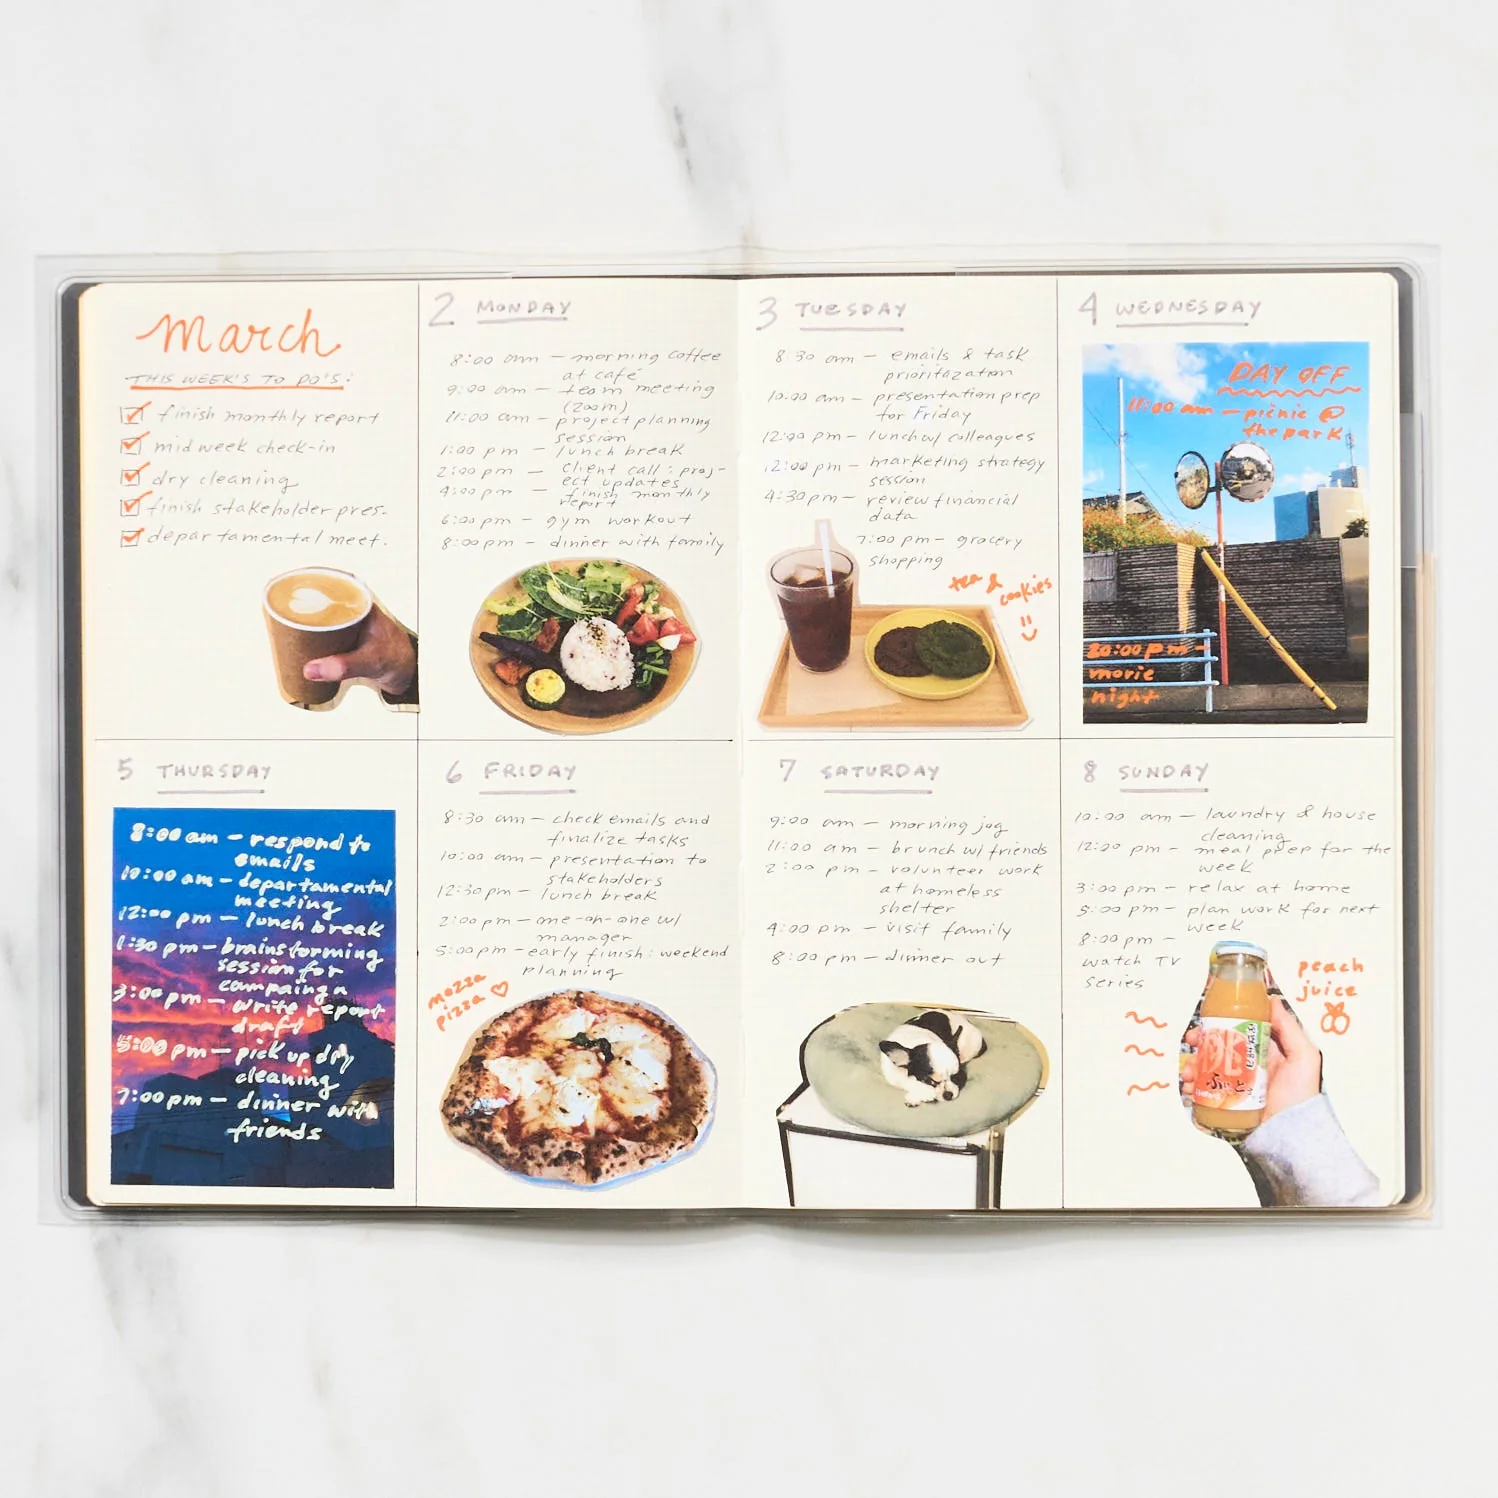 March
THIS WEEK'S TO DO'S:
finish monthly report
mid week check-in
dry cleaning
finish stakeholder pres.
departamental meet.
2 MONDAY
8:00 am — morning coffee
at café
9:00 am — team meeting
(zoom)
11:00 am — project planning
session
1:00 pm — lunch break
2:00 pm — client call: proj-
ect updates
4:00 pm — finish monthly
report
6:00 pm — gym workout
8:00 pm — dinner with family
3 TUESDAY
8:30 am — emails & task
prioritazation
10:00 am — presentation prep
for Friday
12:00 pm — lunch w/ colleagues
12:00 pm — marketing strategy
session
4:30 pm — review financial
data
7:00 pm — grocery
shopping
tea &
cookies
4 WEDNESDAY
DAY OFF
11:00 am — picnic @
the park
20:00 pm —
movie
night
5 THURSDAY
8:00 am — respond to
emails
10:00 am — departamental
meeting
12:00 pm — lunch break
1:30 pm — brainstorming
session for
campaingn
3:00 pm — write report
draft
5:00 pm — pick up dry
cleaning
7:00 pm — dinner with
friends
6 FRIDAY
8:30 am — check emails and
finalize tasks
10:00 am — presentation to
stakeholders
12:30 pm — lunch break
2:00 pm — one-on-one w/
manager
5:00 pm — early finish: weekend
planning
mozza
pizza ♡
7 SATURDAY
9:00 am — morning jog
11:00 am — brunch w/ friends
2:00 pm — volunteer work
at homeless
shelter
4:00 pm — visit family
8:00 pm — dinner out
8 SUNDAY
10:00 am — laundry & house
cleaning
12:00 pm — meal prep for the
week
3:00 pm — relax at home
5:00 pm — plan work for next
week
8:00 pm —
watch TV
series
peach
juice
桃